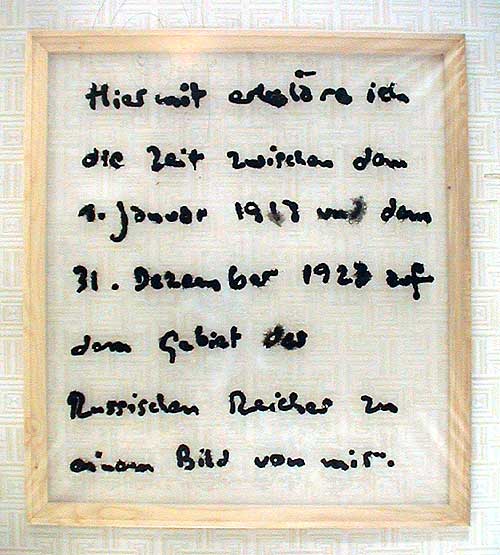 Hiermit erkläre ich
die Zeit zwischen dem
1. Januar und dem
31. Dezember auf
dem Gebiet des
Russischen Reiches zu
einem Bild von mir.